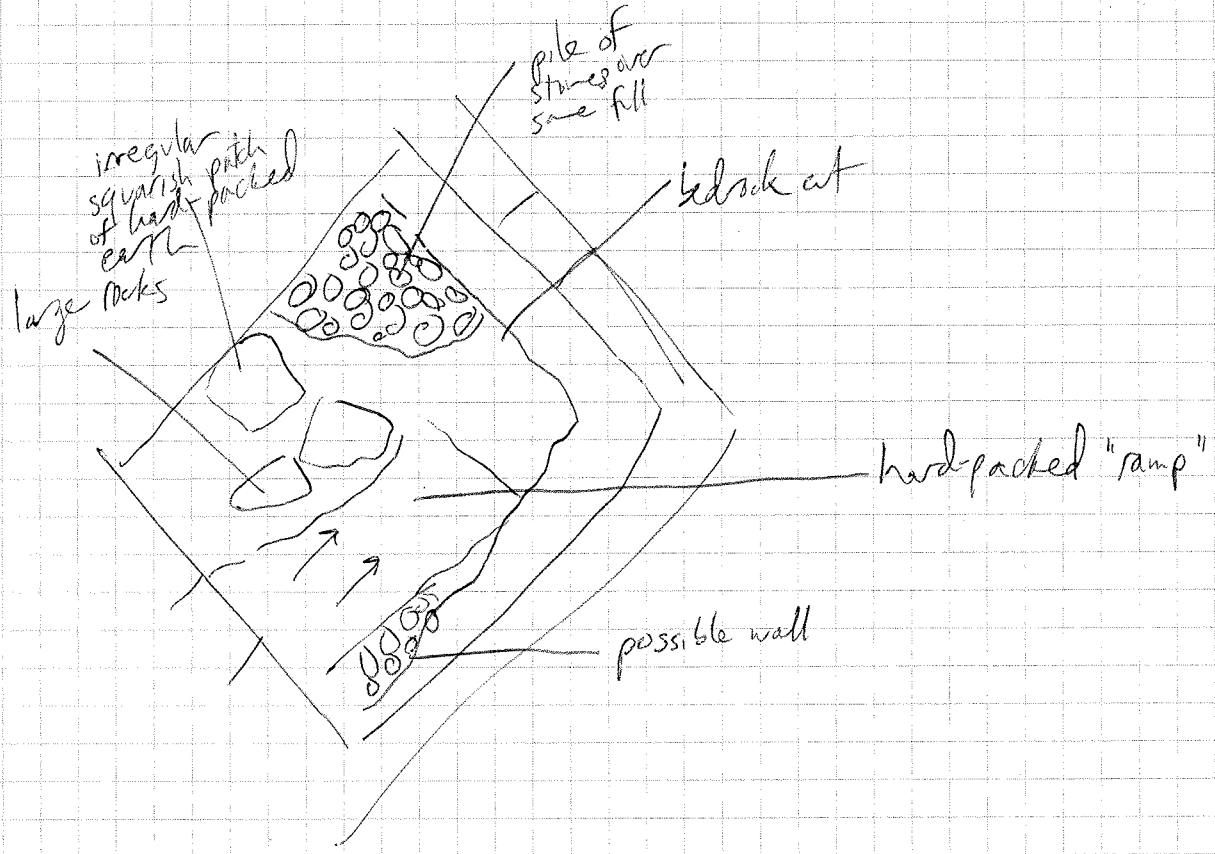 pile of
stones over
same fill
irregular
squarish patch
of hard-packed
earth
large rocks
bedrock cut
hard-packed "ramp"
possible wall